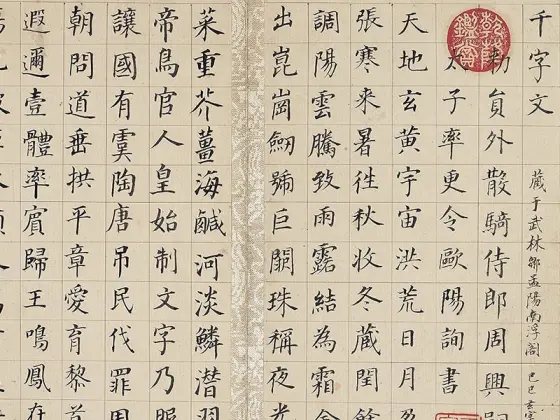 千字文
藏于武林鄒孟陽南浮阁 己巳玄
乾隆鑑賞
勅員外散騎侍郎周興嗣
太子率更令歐陽詢書
天地玄黃宇宙洪荒日月盈
張寒来暑徃秋收冬藏閏餘
調陽雲騰致雨露結為霜金
出崑崗劒號巨闕珠稱夜光
菜重芥薑海鹹河淡鱗潛羽
帝鳥官人皇始制文字乃服
讓國有虞陶唐吊民伐罪周
朝問道垂拱平章愛育黎首
遐邇壹體率賓歸王鳴鳳在